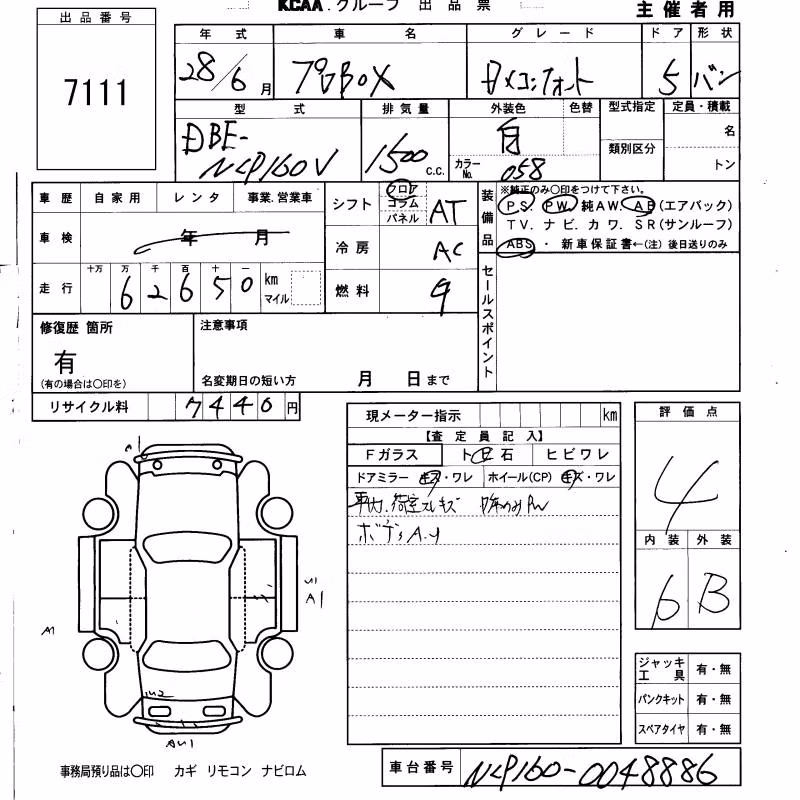 KCAA.グループ 出品票
主催者用
出品番号
7111
年式 車名 グレード ドア 形状
28/6月 プロBOX DXコンフォート 5 バン
型式 排気量 外装色 色替 型式指定 定員・積載
DBE-NCP160V 1500 c.c. 白 類別区分 名
カラーNo. 058 トン
車歴 自家用 レンタ 事業.営業車
シフト フロア コラム パネル AT
車検 年 月
冷房 AC
走行 十万 万 千 百 十 一 km マイル
62650
燃料
装備品 ※純正のみ〇印をつけて下さい。
PS. PW. 純AW. AB(エアバック)
TV. ナビ. カワ. SR(サンルーフ)
ABS ・ 新車保証書←(注) 後日送りのみ
セールスポイント
修復歴 箇所
有
(有の場合は〇印を)
注意事項
名変期日の短い方 月 日まで
リサイクル料 7440円
現メーター指示 km
【査定員記入】
Fガラス トビ石 ヒビワレ
ドアミラー キズ・ワレ ホイール(CP) キズ・ワレ
荷室スレキズ
ボディA.U
評価点
4
内装 外装
6 B
A1
A1
AU1
ジャッキ工具 有・無
パンクキット 有・無
スペアタイヤ 有・無
事務局預り品は〇印 カギ リモコン ナビロム
車台番号 NCP160-0048886